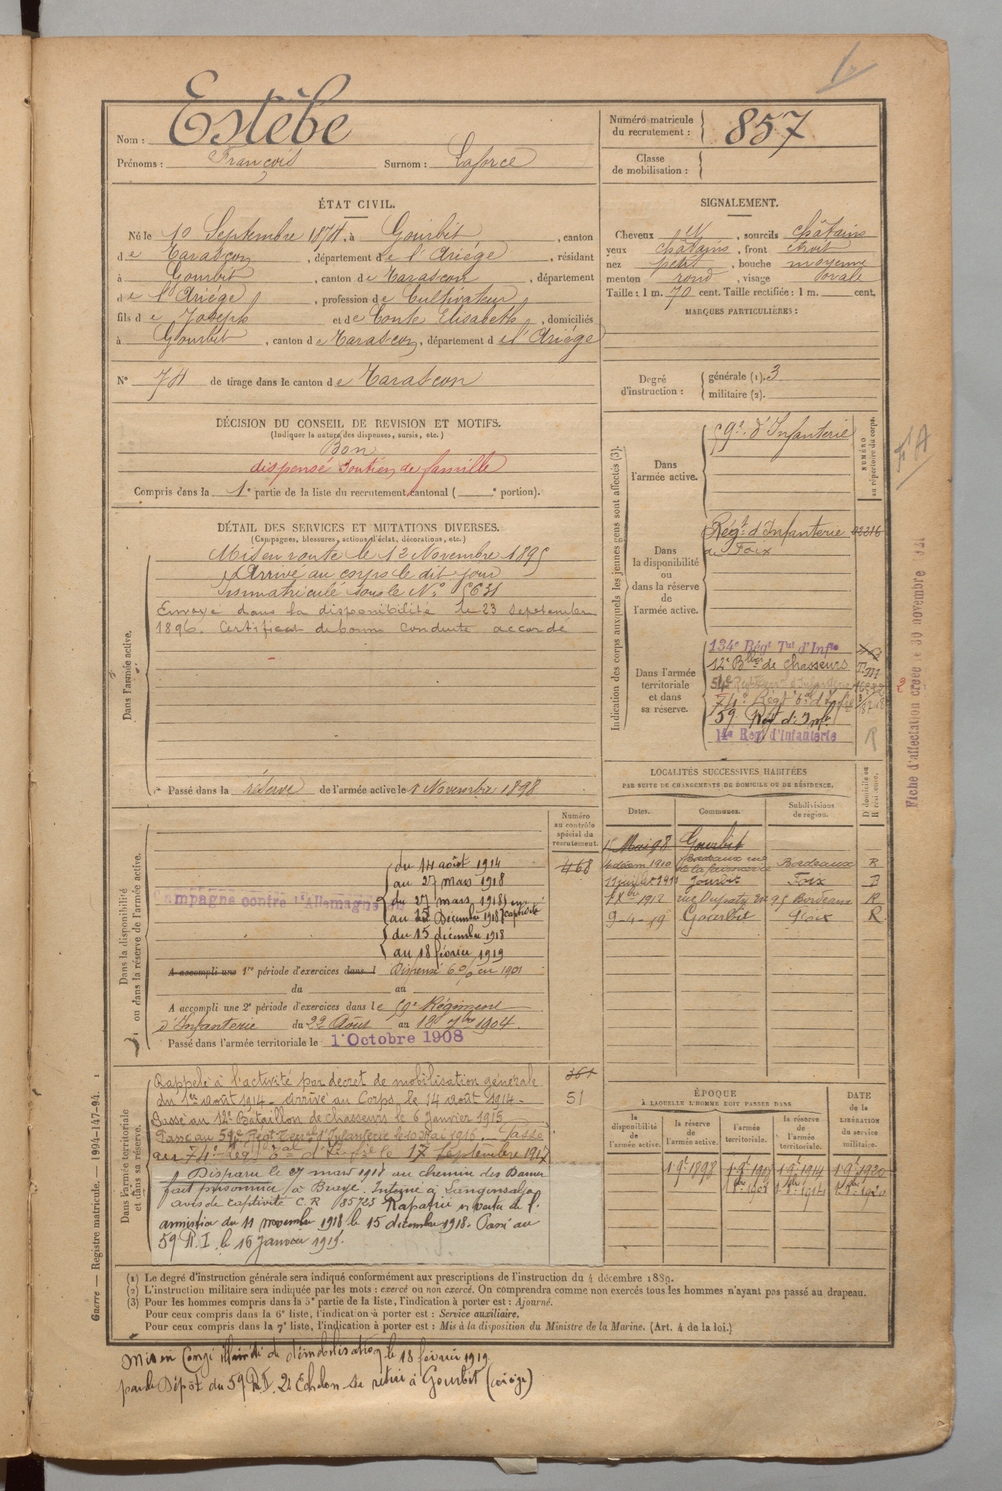 Nom : Estèbe
Prénoms : François Surnom : Laforce
Numéro matricule du recrutement : 857
Classe de mobilisation :
ÉTAT CIVIL.
Né le 10 Septembre 1874, à Gourbit, canton
de Tarascon, département de l'Ariège, résidant
à Gourbit, canton de Tarascon, département
de l'Ariège, profession de Cultivateur
fils de Joseph et de Conte Elisabeth, domiciliés
à Gourbit, canton de Tarascon, département de l'Ariège
N° 74 de tirage dans le canton de Tarascon
SIGNALEMENT.
Cheveux N, sourcils châtains
yeux châtains, front étroit
nez petit, bouche moyenne
menton rond, visage ovale
Taille : 1 m. 70 cent. Taille rectifiée : 1 m. cent.
MARQUES PARTICULIÈRES :
Degré d'instruction : générale (1). 3
militaire (2).
DÉCISION DU CONSEIL DE REVISION ET MOTIFS.
(Indiquer la nature des dispenses, sursis, etc.)
Bon
dispensé soutien de famille
Compris dans la 1e partie de la liste du recrutement cantonal ( e portion).
DÉTAIL DES SERVICES ET MUTATIONS DIVERSES.
(Campagnes, blessures, actions d'éclat, décorations, etc.)
Dans l'armée active.
Mis en route le 12 Novembre 1895
Arrivé au corps le dit jour
Immatriculé sous le N° 5631
Envoyé dans la disponibilité le 23 Septembre
1896. Certificat de bonne conduite accordé
Passé dans la réserve de l'armée active le 1 Novembre 1898
Indication des corps auxquels les jeunes gens sont affectés (3).
NUMÉRO au répertoire du corps.
Dans l'armée active.
59e d'Infanterie
Dans la disponibilité ou dans la réserve de l'armée active.
Régt d'Infanterie
de Foix
Dans l'armée territoriale et dans sa réserve.
134e Régt Tal d'Infie
12e Bllon de chasseurs
54e
74e
59 Regt d'Inf.
14e Reg d'Infanterie
R
Fiche d'affectation créée le 30 novembre 921
LOCALITÉS SUCCESSIVES HABITÉES
PAR SUITE DE CHANGEMENTS DE DOMICILE OU DE RÉSIDENCE.
Dates. Communes. Subdivisions de région. D domicile ou R résidence.
Mai 98 Gourbit
1910 Bordeaux rue Bordeaux R
11 juillet 1911 Foix
1912 rue Bordeaux R
9-4-19 Gourbit Foix R
Dans la disponibilité ou dans la réserve de l'armée active.
Numéro au contrôle spécial du recrutement.
468
Campagne contre l'Allemagne
du 14 août 1914
au 27 mars 1918
du 27 mars 1918 en
au 15 Décembre 1918 captivité
du 15 décembre 1918
au 18 février 1919
A accompli une 1re période d'exercices dans l Dispensé en 1901
du au
A accompli une 2e période d'exercices dans le 59e Régiment
d'Infanterie du 22 Août au 18 7bre 1904.
Passé dans l'armée territoriale le 1 Octobre 1908
Dans l'armée territoriale et dans sa réserve.
51
Rappelé à l'activité par décret de mobilisation générale
du 1er août 1914. Arrivé au Corps le 14 août 1914.
Passé au 12e Bataillon de chasseurs le 6 Janvier 1915
Passé au 54e Regt Territ d'Infanterie le 10 Mai 1916. Passé
au 74e le 17 Septembre 1917
Disparu le 27 mars 1918 au chemin des Dames
fait prisonnier à Interné à Langensalza
avis de captivité C.R. 85725 Rapatrié en vertu de l'
armistice du 11 novembre 1918 le 15 décembre 1918. Passé au
59 R.I. le 16 Janvier 1919.
ÉPOQUE
A LAQUELLE L'HOMME DOIT PASSER DANS
la disponibilité de l'armée active. la réserve de l'armée active. l'armée territoriale. la réserve de l'armée territoriale. DATE de la LIBÉRATION du service militaire.
1 9e 1898 1 9e 1908 1 9e 1914 1 9e 1920
(1) Le degré d'instruction générale sera indiqué conformément aux prescriptions de l'instruction du 4 décembre 1889.
(2) L'instruction militaire sera indiquée par les mots : exercé ou non exercé. On comprendra comme non exercés tous les hommes n'ayant pas passé au drapeau.
(3) Pour les hommes compris dans la 5e partie de la liste, l'indication à porter est : Ajourné.
Pour ceux compris dans la 6e liste, l'indication à porter est : Service auxiliaire.
Pour ceux compris dans la 7e liste, l'indication à porter est : Mis à la disposition du Ministre de la Marine. (Art. 4 de la loi.)
Guerre — Registre matricule. — 1994-147-94.
Mis en Congé illimité de démobilisation le 18 février 1919
par le Dépôt du 59 R.I. 2e Echelon se retire à Gourbit (Ariège)